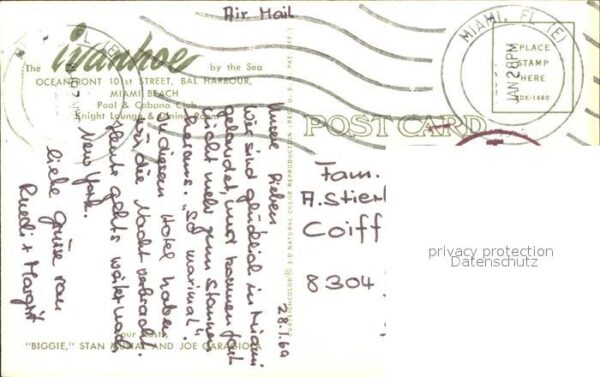 Air Mail
The Ivanhoe by the Sea
OCEANFRONT 101st STREET, BAL HARBOUR,
MIAMI BEACH
Pool & Cabana Club
Knight Lounge & Dining Room
MIAMI, FL (E)
JAN 28 PM
PLACE
STAMP
HERE
DK-1460
POST CARD
28.1.69
Meine Lieben
Wir sind glücklich in Miami
gelandet, und kommen fast
nicht mehr zum Staunen
heraus. "So maximal".
In diesem Hotel haben
wir die Nacht verbracht.
Heute geht's weiter nach
New York.
Liebe Grüsse von
Ruedi + Margrit
Fam.
A. Stierl
Coiff
8304
privacy protection
Datenschutz
your hosts,
"BIGGIE," STAN MUSIAL AND JOE GARAGIOLA
3-D NATURAL COLOR REPRODUCTION